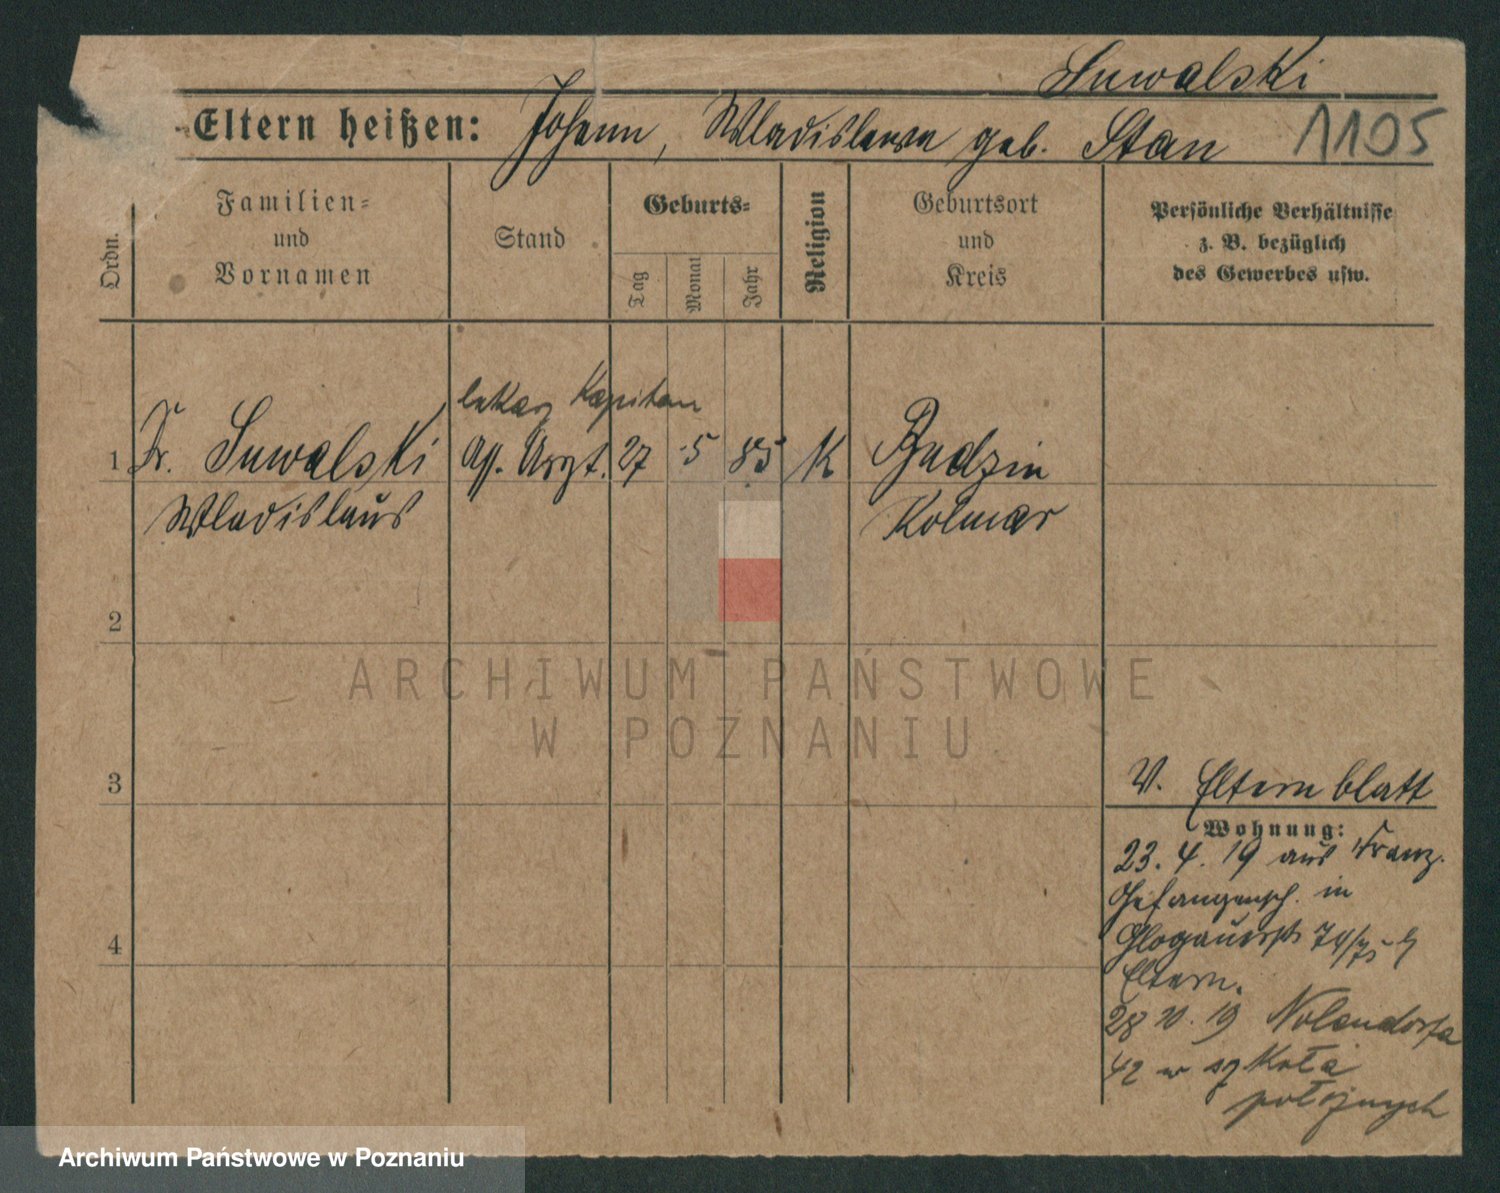 Suwalski
Eltern heißen: Johann, Wladislawa geb. Stan 1105
Ordn.
Familien=
und
Vornamen
Stand
Geburts=
Tag
Monat
Jahr
Religion
Geburtsort
und
Kreis
Persönliche Verhältnisse
z. B. bezüglich
des Gewerbes usw.
lekarz Kapitan
1 Dr. Suwalski Ass. Arzt. 27 5 85 K Budzin
Wladislaus Kolmar
2
ARCHIWUM PAŃSTWOWE
W POZNANIU
3
V. Elternblatt
Wohnung:
23. 4. 19 aus Franz.
Gefangensch. in
4
Glogauerstr 74/75
Eltern.
28 19 Nolendorfa
42 w szkole
położnych
Archiwum Państwowe w Poznaniu